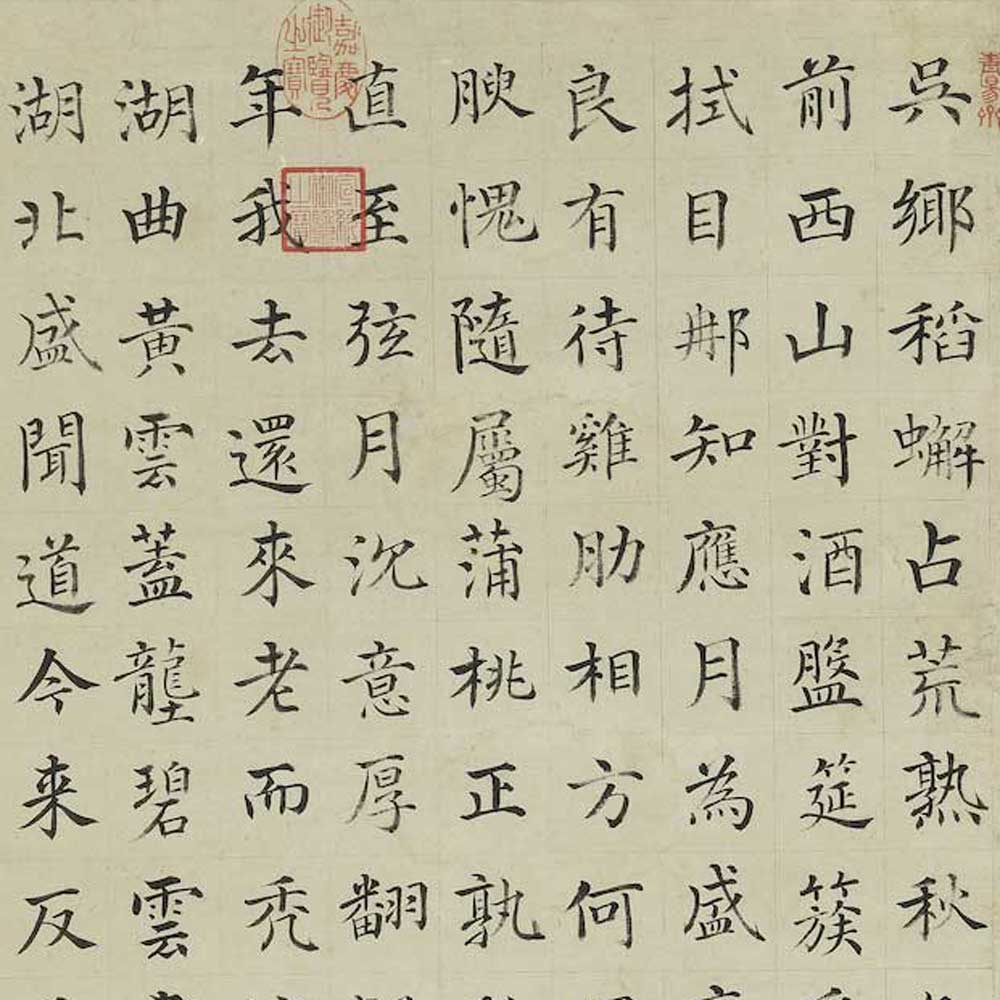 吳鄉稻蠏占荒熟秋
前西山對酒盤筵簇
拭目郍知應月為盛
良有待雞肋相方何
腴愧隨屬蒲桃正孰
直至弦月沉意厚翻
年我去還來老而禿
湖曲黃雲蓋壟碧雲
湖北盛聞道今来反
嘉慶御覽之寶